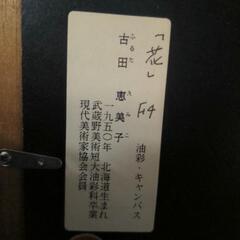 「花」 F4
油彩・キャンバス
ふるた えみこ
古田 恵美子
一九五〇年 北海道生まれ
武蔵野美術短大油彩科卒業
現代美術家協会会員